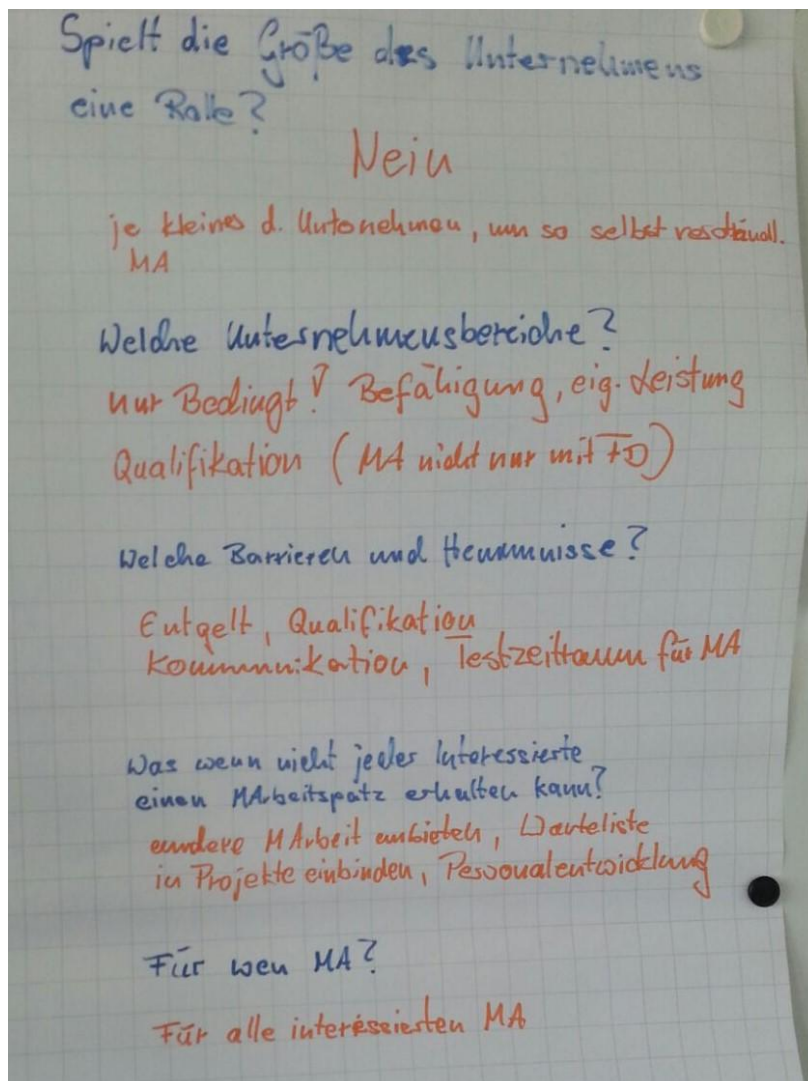 Spielt die Größe des Unternehmens
eine Rolle?
Nein
je kleines d. Unternehmen, um so selbstverständl.
MA
Welche Unternehmensbereiche?
nur Bedingt! Befähigung, eig. Leistung
Qualifikation (MA nicht nur mit FD)
Welche Barrieren und Hemmnisse?
Entgelt, Qualifikation
Kommunikation, Testzeitraum für MA
Was wenn nicht jeder Interessierte
einen MArbeitspatz erhalten kann?
andere MArbeit anbieten, Warteliste
in Projekte einbinden, Personalentwicklung
Für wen MA?
Für alle interessierten MA